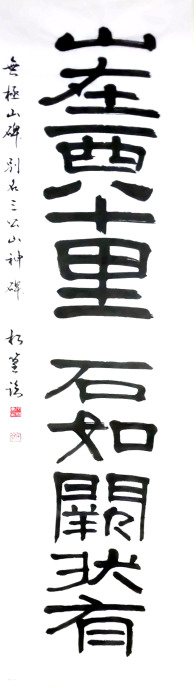 山在西八十里 石如闕狀有
無極山碑 別名三公山神碑